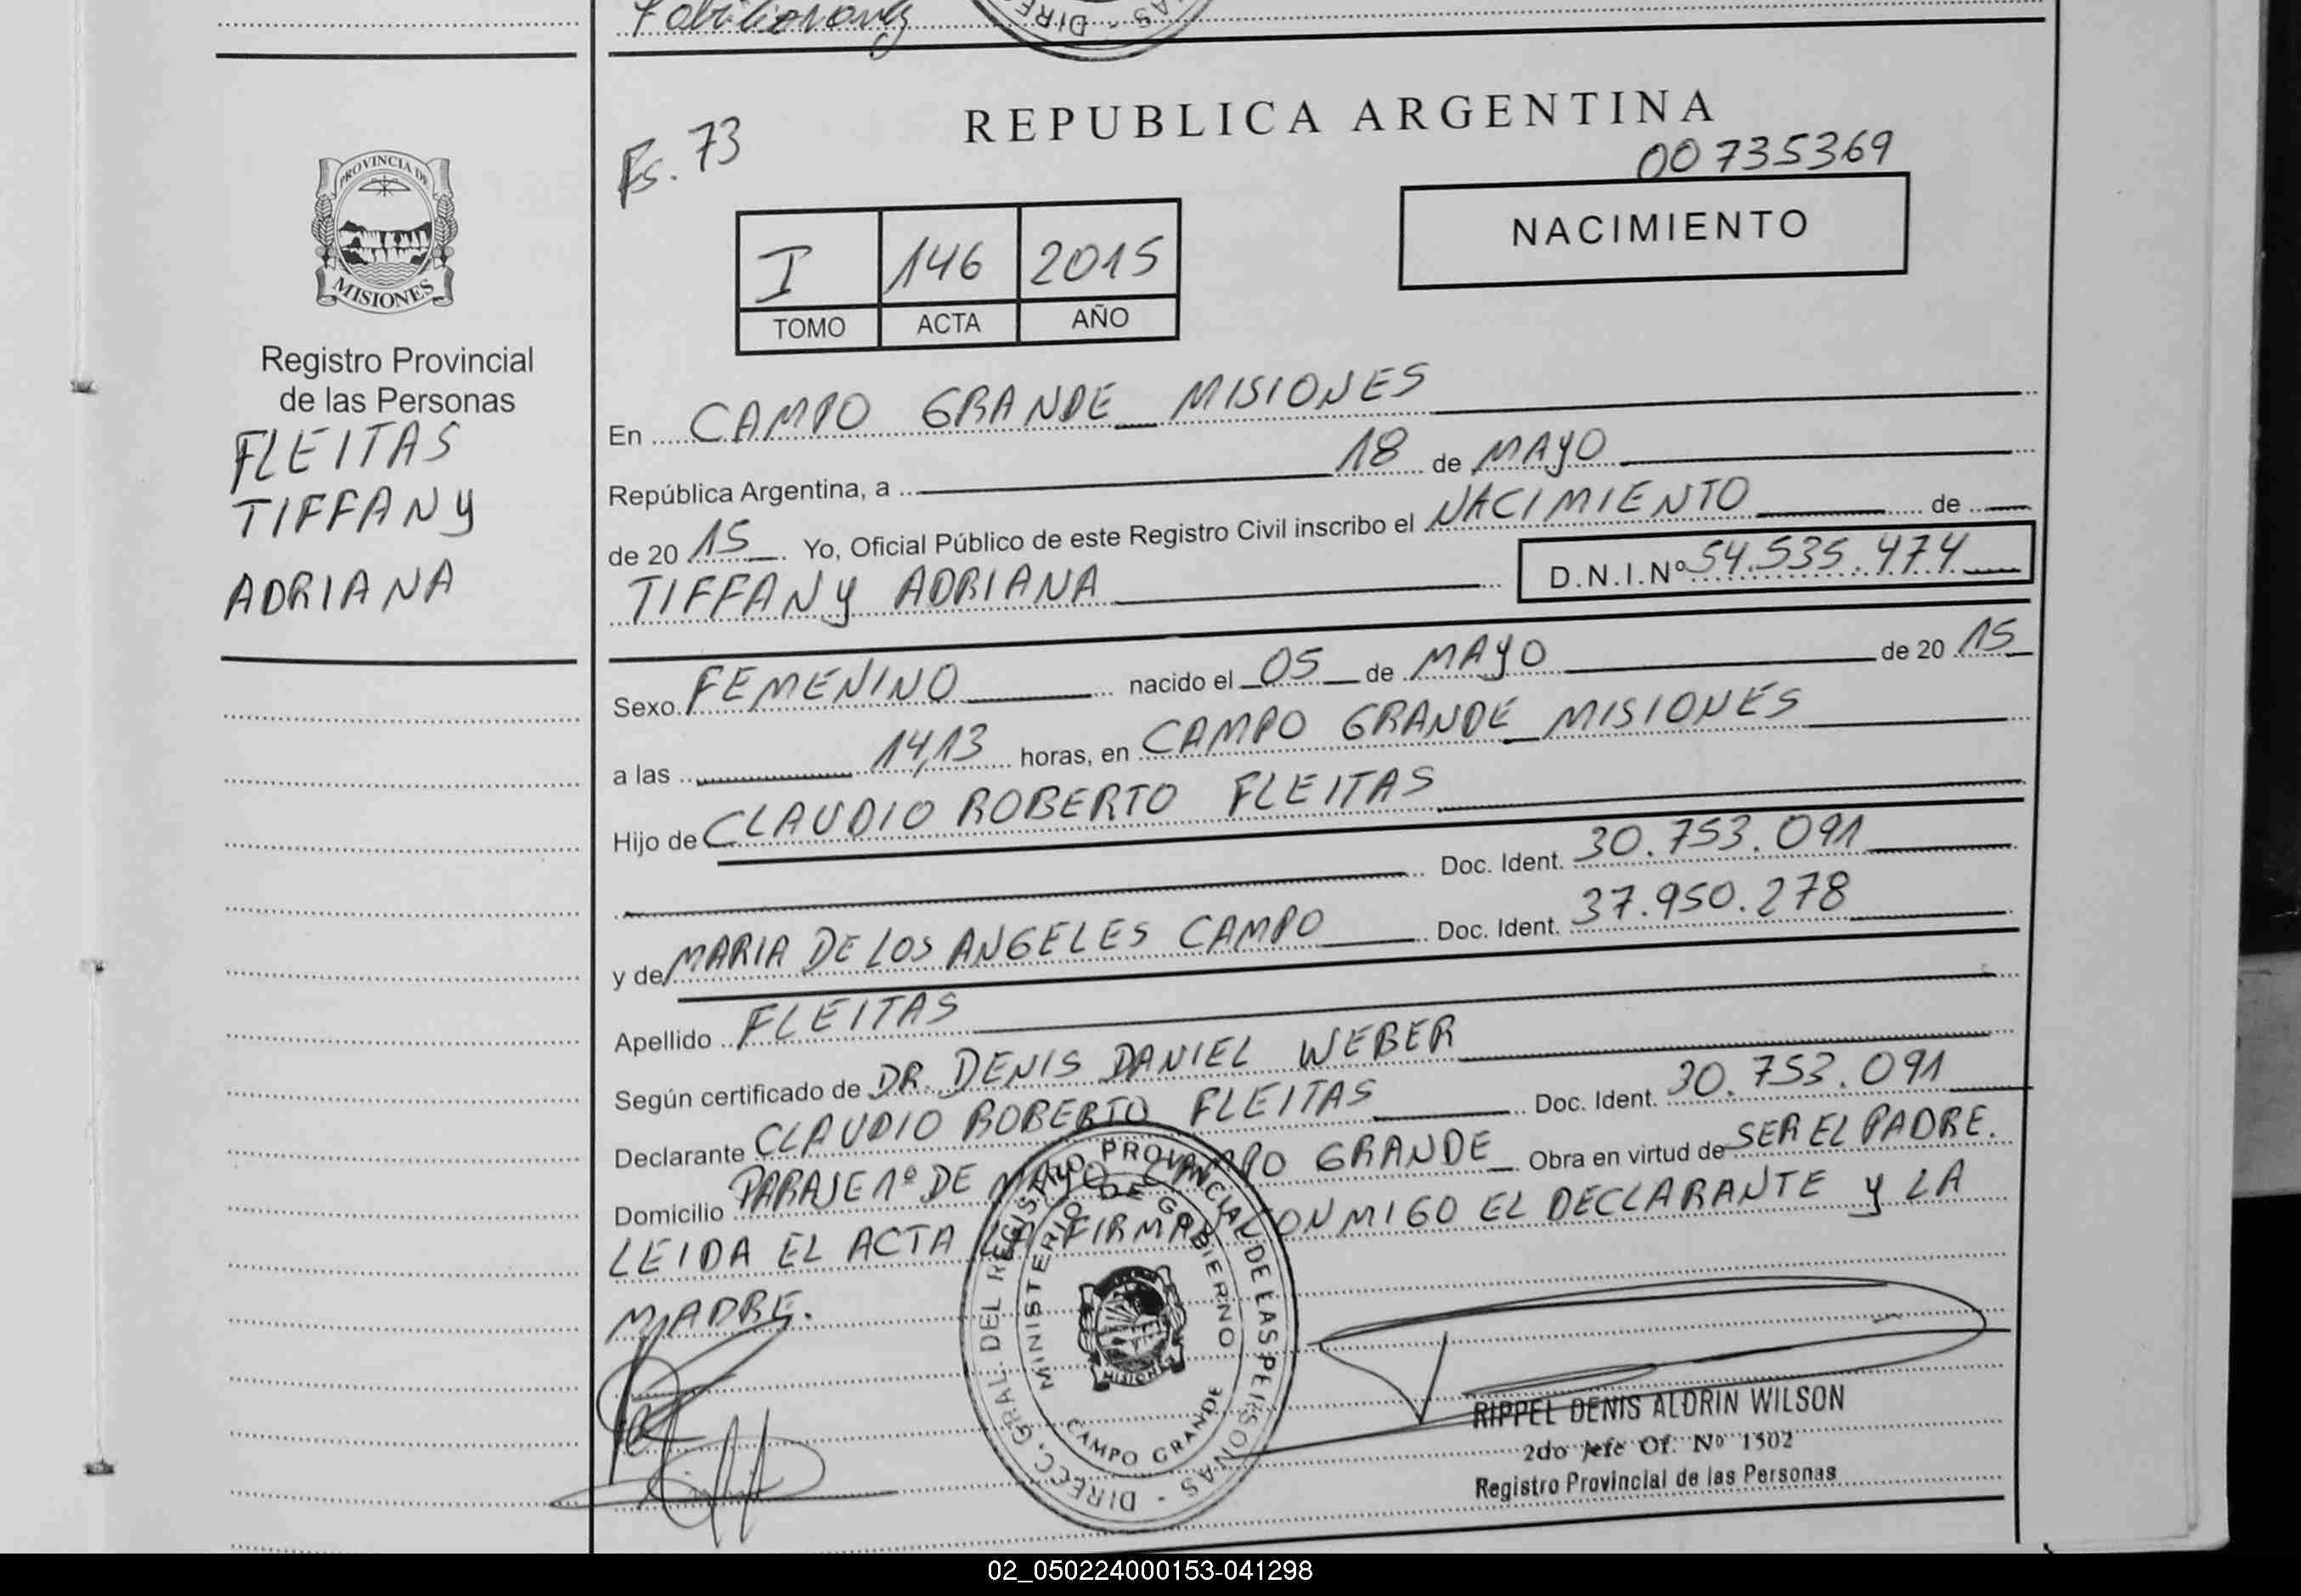 REPUBLICA ARGENTINA
Fs. 73
00735369
PROVINCIA DE
MISIONES
Registro Provincial
de las Personas
FLEITAS
TIFFANY
ADRIANA
I 146 2015
TOMO ACTA AÑO
NACIMIENTO
En CAMPO GRANDE MISIONES
República Argentina, a 18 de MAYO
de 20 15. Yo, Oficial Público de este Registro Civil inscribo el NACIMIENTO de
TIFFANY ADRIANA D.N.I.Nº 54.535.474
Sexo FEMENINO nacido el 05 de MAYO de 20 15
a las 14,13 horas, en CAMPO GRANDE MISIONES
Hijo de CLAUDIO ROBERTO FLEITAS
Doc. Ident. 30.753.091
y de MARIA DE LOS ANGELES CAMPO Doc. Ident. 37.950.278
Apellido FLEITAS
Según certificado de DR. DENIS DANIEL WEBER
Declarante CLAUDIO ROBERTO FLEITAS Doc. Ident. 30.753.091
Domicilio PARAJE 1º DE MAYO CAMPO GRANDE Obra en virtud de SER EL PADRE.
LEIDA EL ACTA LA FIRMA CONMIGO EL DECLARANTE Y LA
MADRE.
DIRECC. GRAL. DEL REGISTRO PROVINCIAL DE LAS PERSONAS -
MINISTERIO DE GOBIERNO
CAMPO GRANDE
RIPPEL DENIS ALDRIN WILSON
2do Jefe Of. Nº 1502
Registro Provincial de las Personas
02_050224000153-041298